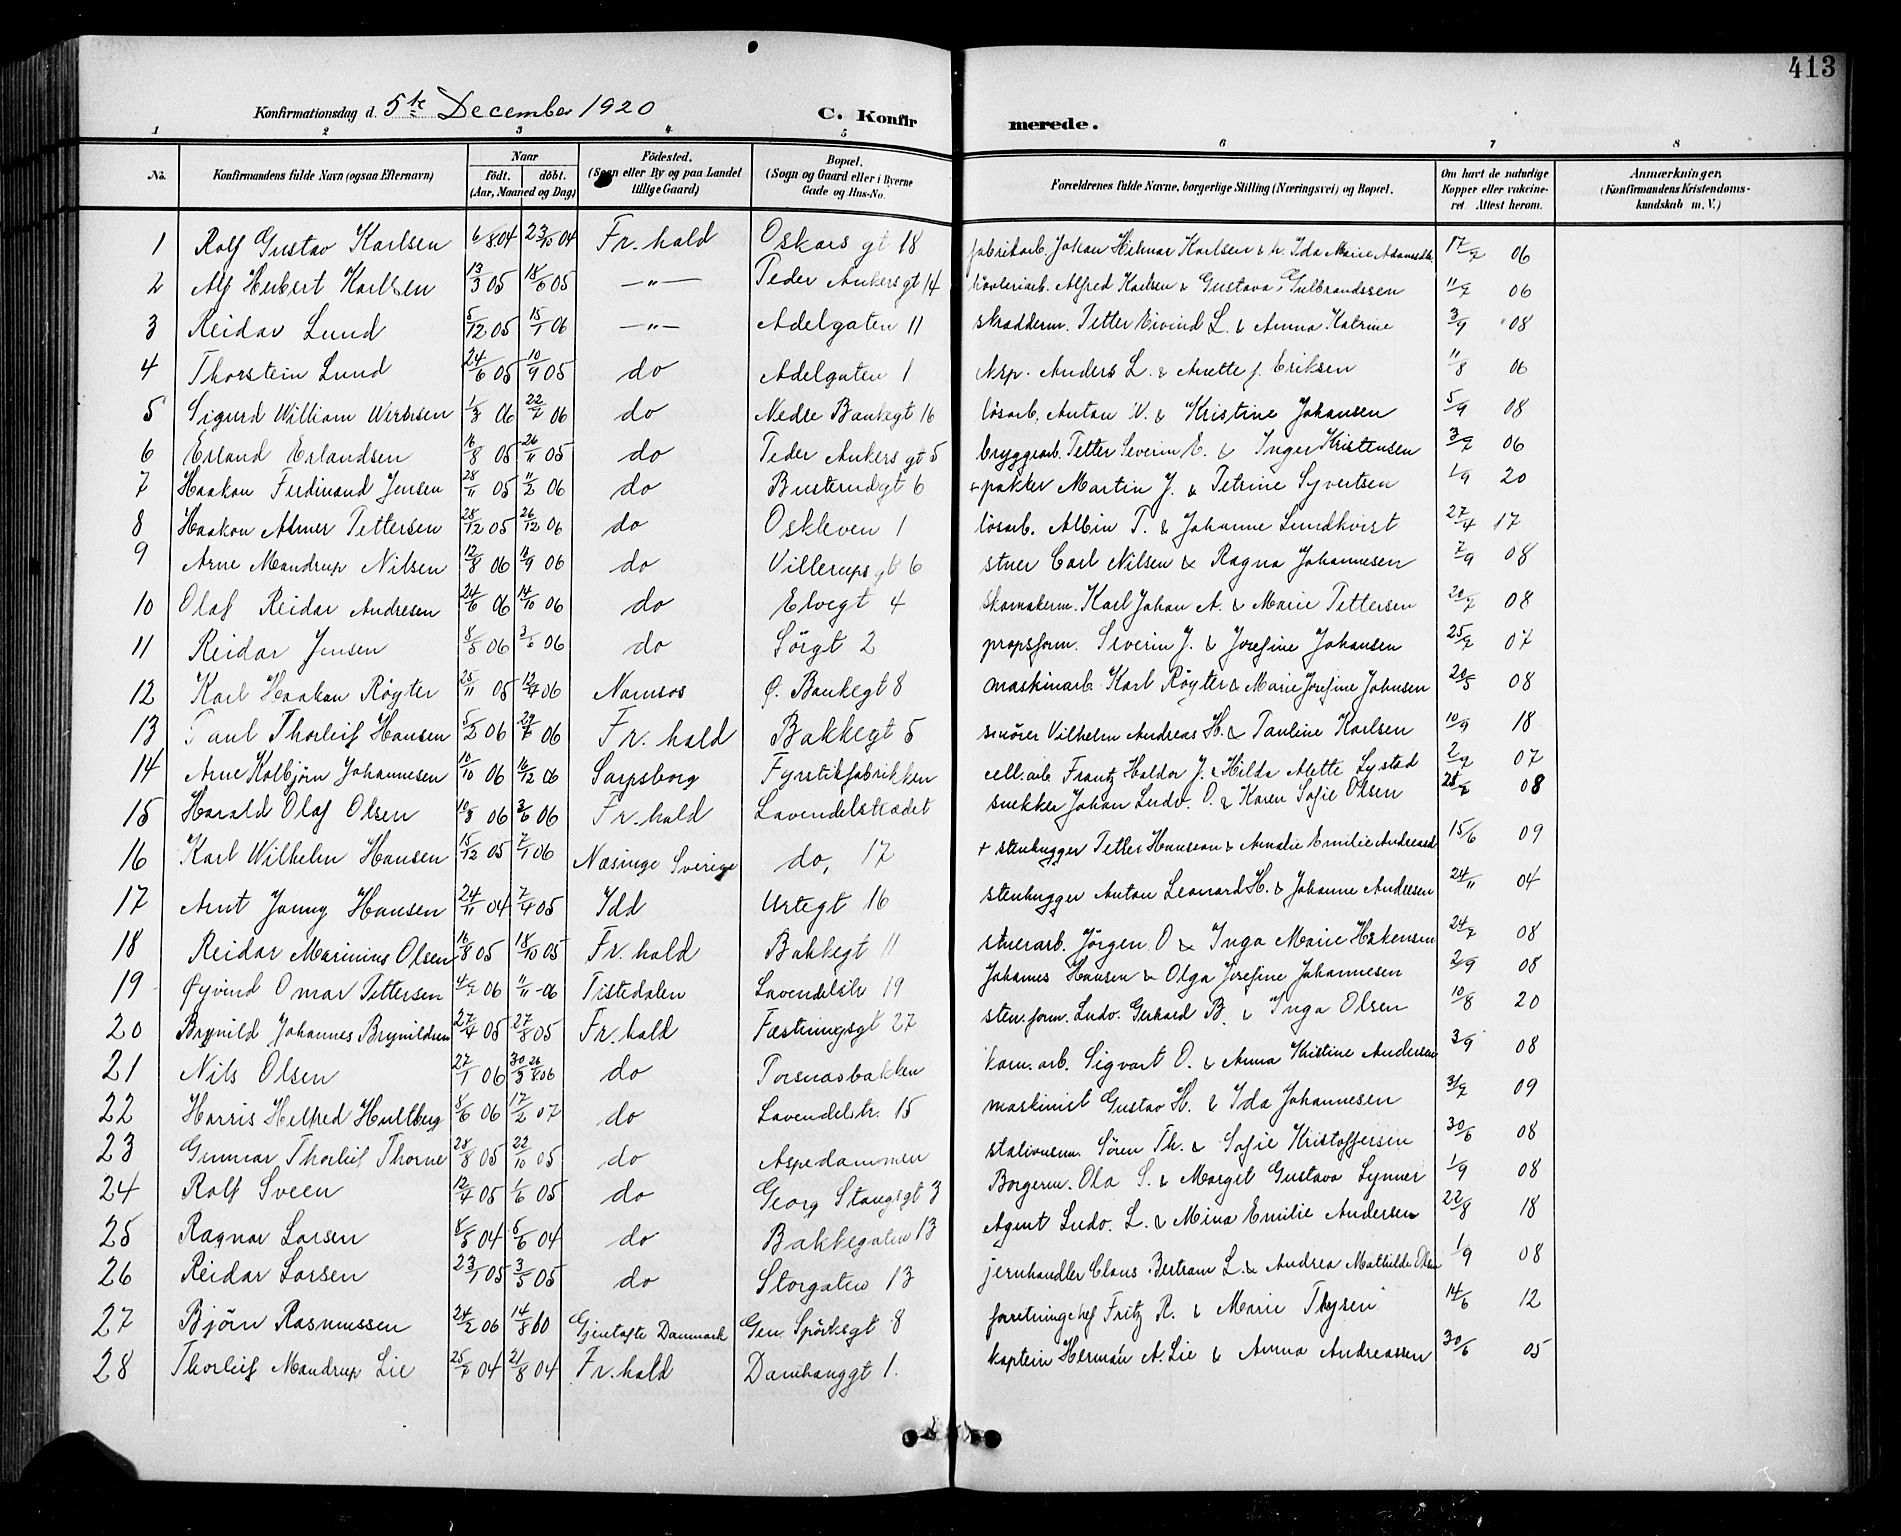 413
Konfirmationsdag d. 5te December 1920 C. Konfir merede.
1 2 3 4 5 6 7 8
No. Konfirmandens fulde Navn (ogsaa Efternavn) Naar født. døbt. (Aar, Maaned og Dag) Födested. (Sogn eller By og paa Landet tillige Gaard) Bopæl. (Sogn og Gaard eller i Byerne Gade og Hus-No. Forældrenes fulde Navne, borgerlige Stilling (Næringsvei) og Bopæl. Om havt de naturlige Kopper eller vakcineret. Attest herom. Anmærkninger, (Konfirmandens Kristendomskundskab m. V.)
1 Rolf Gustav Karlsen 6/8 04 23/10 04 Fr.hald Oskars gt 18 fabrikarb. Johan Hilmar Karlsen & h. Ida Marie Adamsdtr. 17/7 06
2 Alf Herbert Karlsen 13/3 05 18/6 05 —"— Peder Ankersgt 14 høvleriarb. Alfred Karlsen & Gustava Gulbrandssen 11/7 06
3 Reidar Lund 5/12 05 15/1 06 —"— Adelgaten 11 skrædderm. Petter Eivind L. & Anna Katrine 3/9 08
4 Thorstein Lund 24/6 05 10/9 05 do Adelgaten 1 Anders L. & Anette f. Eriksen 11/8 06
5 Sigurd William 1/3 06 22/7 06 do Nedre Bankegt 16 løsarb. Anton W. & Kristine Johansen 5/9 08
6 Erland Erlandsen 16/8 05 26/11 05 do Peder Ankers gt 5 bryggearb. Petter Severin E. & Inger Kristensen 3/7 06
7 Haakon Ferdinand Jensen 28/11 05 11/2 06 do Busterudgt 6 + pakker Martin J. & Petrine Syvertsen 1/9 20
8 Haakon Almer Pettersen 28/12 05 26/12 06 do Oskleven 1 løsarb. Albin P. & Johanne Lundkvist 27/4 17
9 Arne Mandrup Nilsen 12/8 06 16/9 06 do Villerups gt 6 stuer Carl Nilsen & Ragna Johannesen 7/9 08
10 Olaf Reidar Andresen 24/6 06 14/10 06 do Elvegt 4 skomakerm. Karl Johan A. & Marie Pettersen 20/7 08
11 Reidar Jensen 8/5 06 3/6 06 do Sørgt 2 propsform. Severin J. & Josefine Johansen 25/7 07
12 Karl Haakon Røyter 25/11 05 12/4 06 Namsos Ø. Bankegt 8 maskinarb. Karl Røyter & Marie Josefine Johnsen 20/5 08
13 Paul Thorleif Hansen 5/2 06 29/7 06 Fr.hald Bakkegt 5 smører Vilhelm Andreas H. & Pauline Karlsen 10/9 18
14 Arne Kolbjørn Johannesen 16/10 06 16/12 06 Sarpsborg Fyrstikfabrikken cell.arb Frantz Haldor J. & Hilda Alette Lystad 2/7 07
15 Harald Olaf Olsen 10/3 06 3/6 06 Fr.hald Lavendelstrædet snekker Johan Ludv. O. & Karen Sofie Olsen 25/7 08
16 Karl Wilhelm Hansen 15/12 05 7/1 06 Næsinge Sverige do, 17 + stenhugger Petter Hansson & Amalie Emilie Andreasd. 15/6 09
17 Arnt Jonny Hansen 24/11 04 7/4 05 Idd Urtegt 16 stenhugger Anton Leonard H. & Johanne Andresen 24/11 04
18 Reidar Marinius Olsen 16/8 05 18/10 05 Fr.hald Bakkegt 11 stuerarb. Jørgen O & Inga Marie Håkensen 24/7 08
19 Øyvind Omar Pettersen 4/7 06 11/11 06 Tistedalen Lavendelstr 19 Johannes Hansen & Olga Josefine Johannesen 2/9 08
20 Brynild Johannes Brynildsen 27/4 05 27/8 05 Fr.hald Fæstningsgt 27 sten.form. Ludv. Gerhard B. & Inga Olsen 10/8 20
21 Nils Olsen 27/1 06 30/3 26/8 06 do Torsnæsbakken kom.arb. Sigvart O. & Anna Kristine Andersen 3/9 08
22 Harris Helfred Hultberg 8/6 06 17/2 07 do Lavendelstr. 15 maskinist Gustav H. & Ida Johannesen 31/7 09
23 Gunnar Thorleif Thorne 28/8 05 22/10 05 do Aspedammen stationsm. Søren Th. & Sofie Kristoffersen 30/6 08
24 Rolf Sveen 12/4 05 1/6 05 do Georg Stangsgt 3 Borgerm. Ola S. & Margit Gustava Lynner 1/9 08
25 Ragnar Larsen 8/5 04 5/6 04 do Bakkegaten 13 Agent Ludv. L. & Mina Emilie Andersen 22/8 18
26 Reidar Larsen 23/1 05 3/5 05 do Storgaten 13 jernhandler Claus Bertram L. & Andrea Mathilde Olsen 1/9 08
27 Bjørn Rasmussen 24/2 06 14/8 10 Gjentofte Danmark Gen. Spørksgt 8 forretningschef Fritz R. & Marie Thysen 14/6 12
28 Thorleif Mandrup Lie 25/7 04 21/8 04 Fr.hald Damhauggt 1. kaptein Herman A. Lie & Anna Andreassen 30/6 05